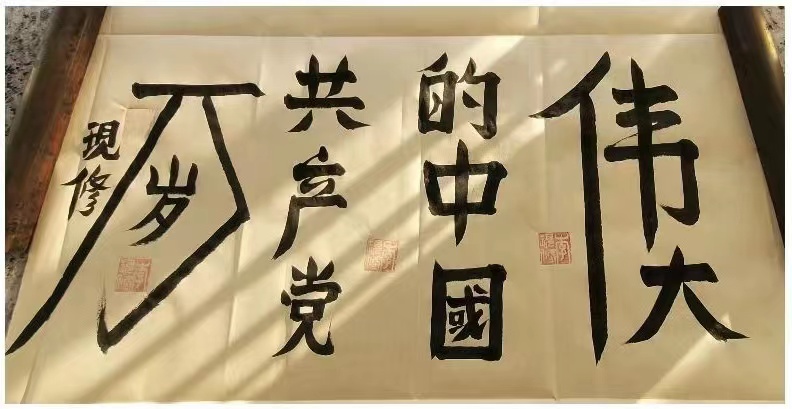 伟大
的中國
共产党
万岁
現修